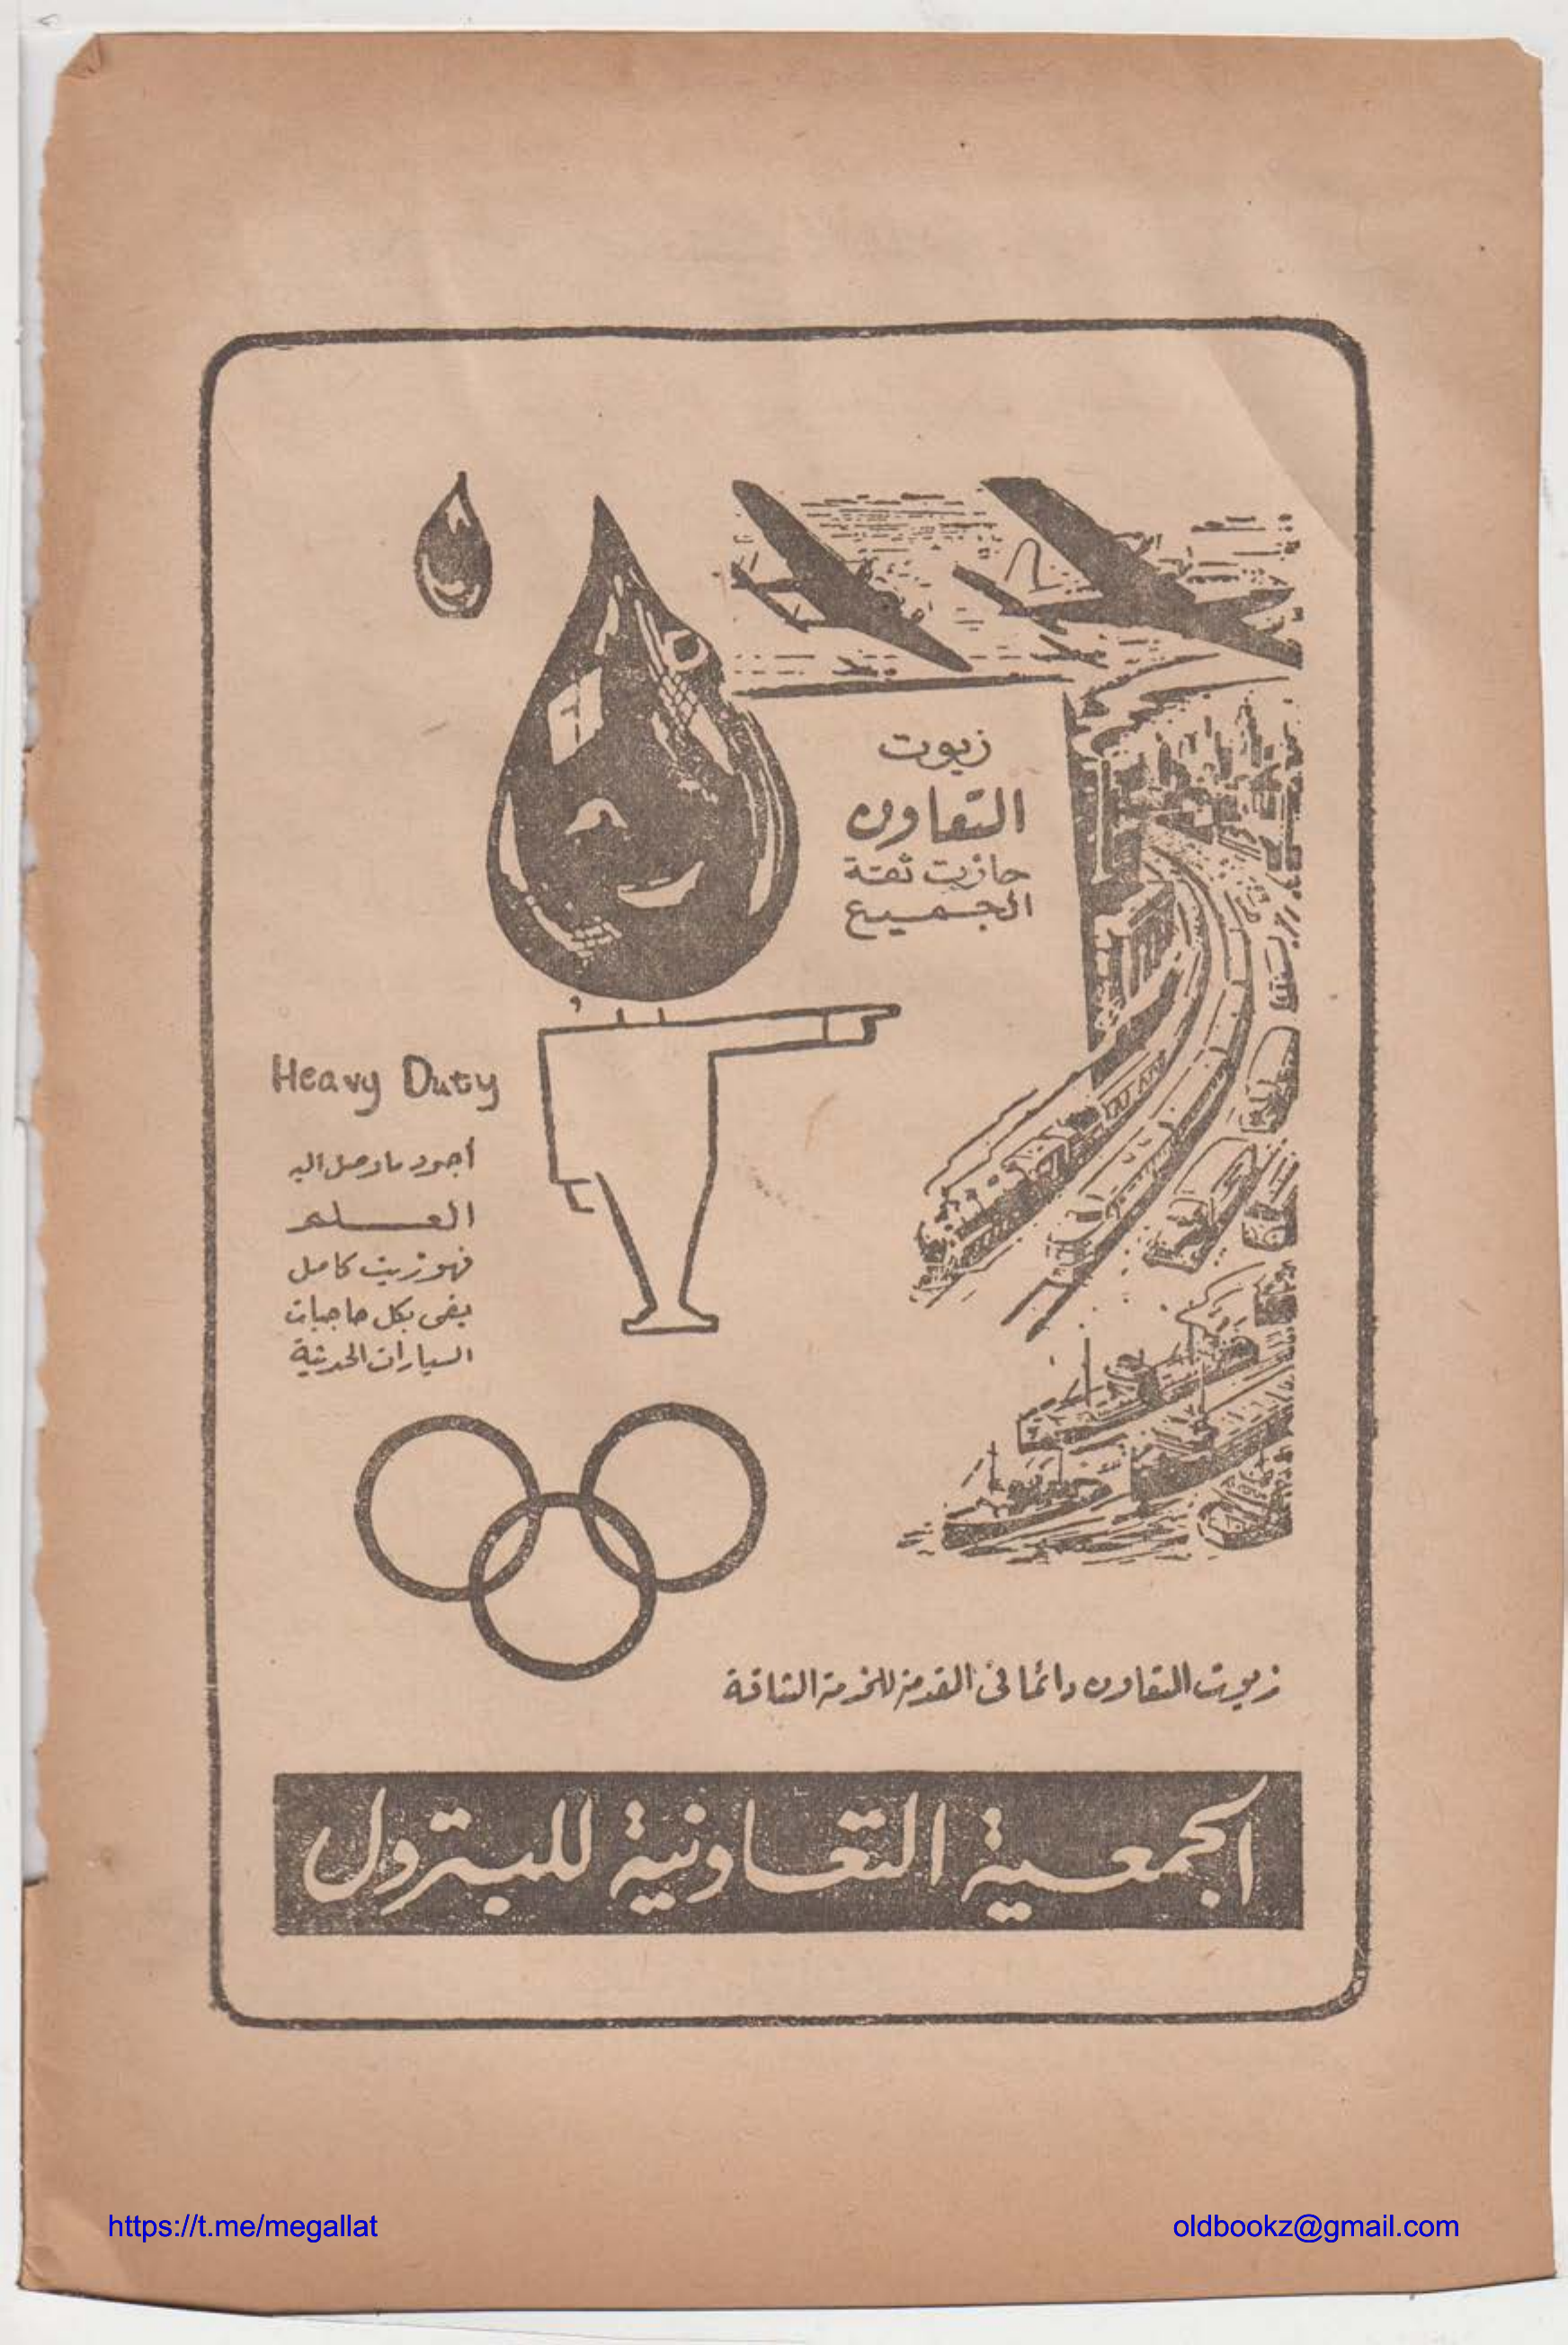 زيوت
التعاون
حازت ثقة
الجميع
Heavy Duty
أجود ما وصل اليه
العلم
فهو زيت كامل
يفى بكل حاجيات
السيارات الحديثة
زيوت التعاون دائما فى القدمة للخدمة الشاقة
الجمعية التعاونية للبترول
https://t.me/megallat
oldbookz@gmail.com